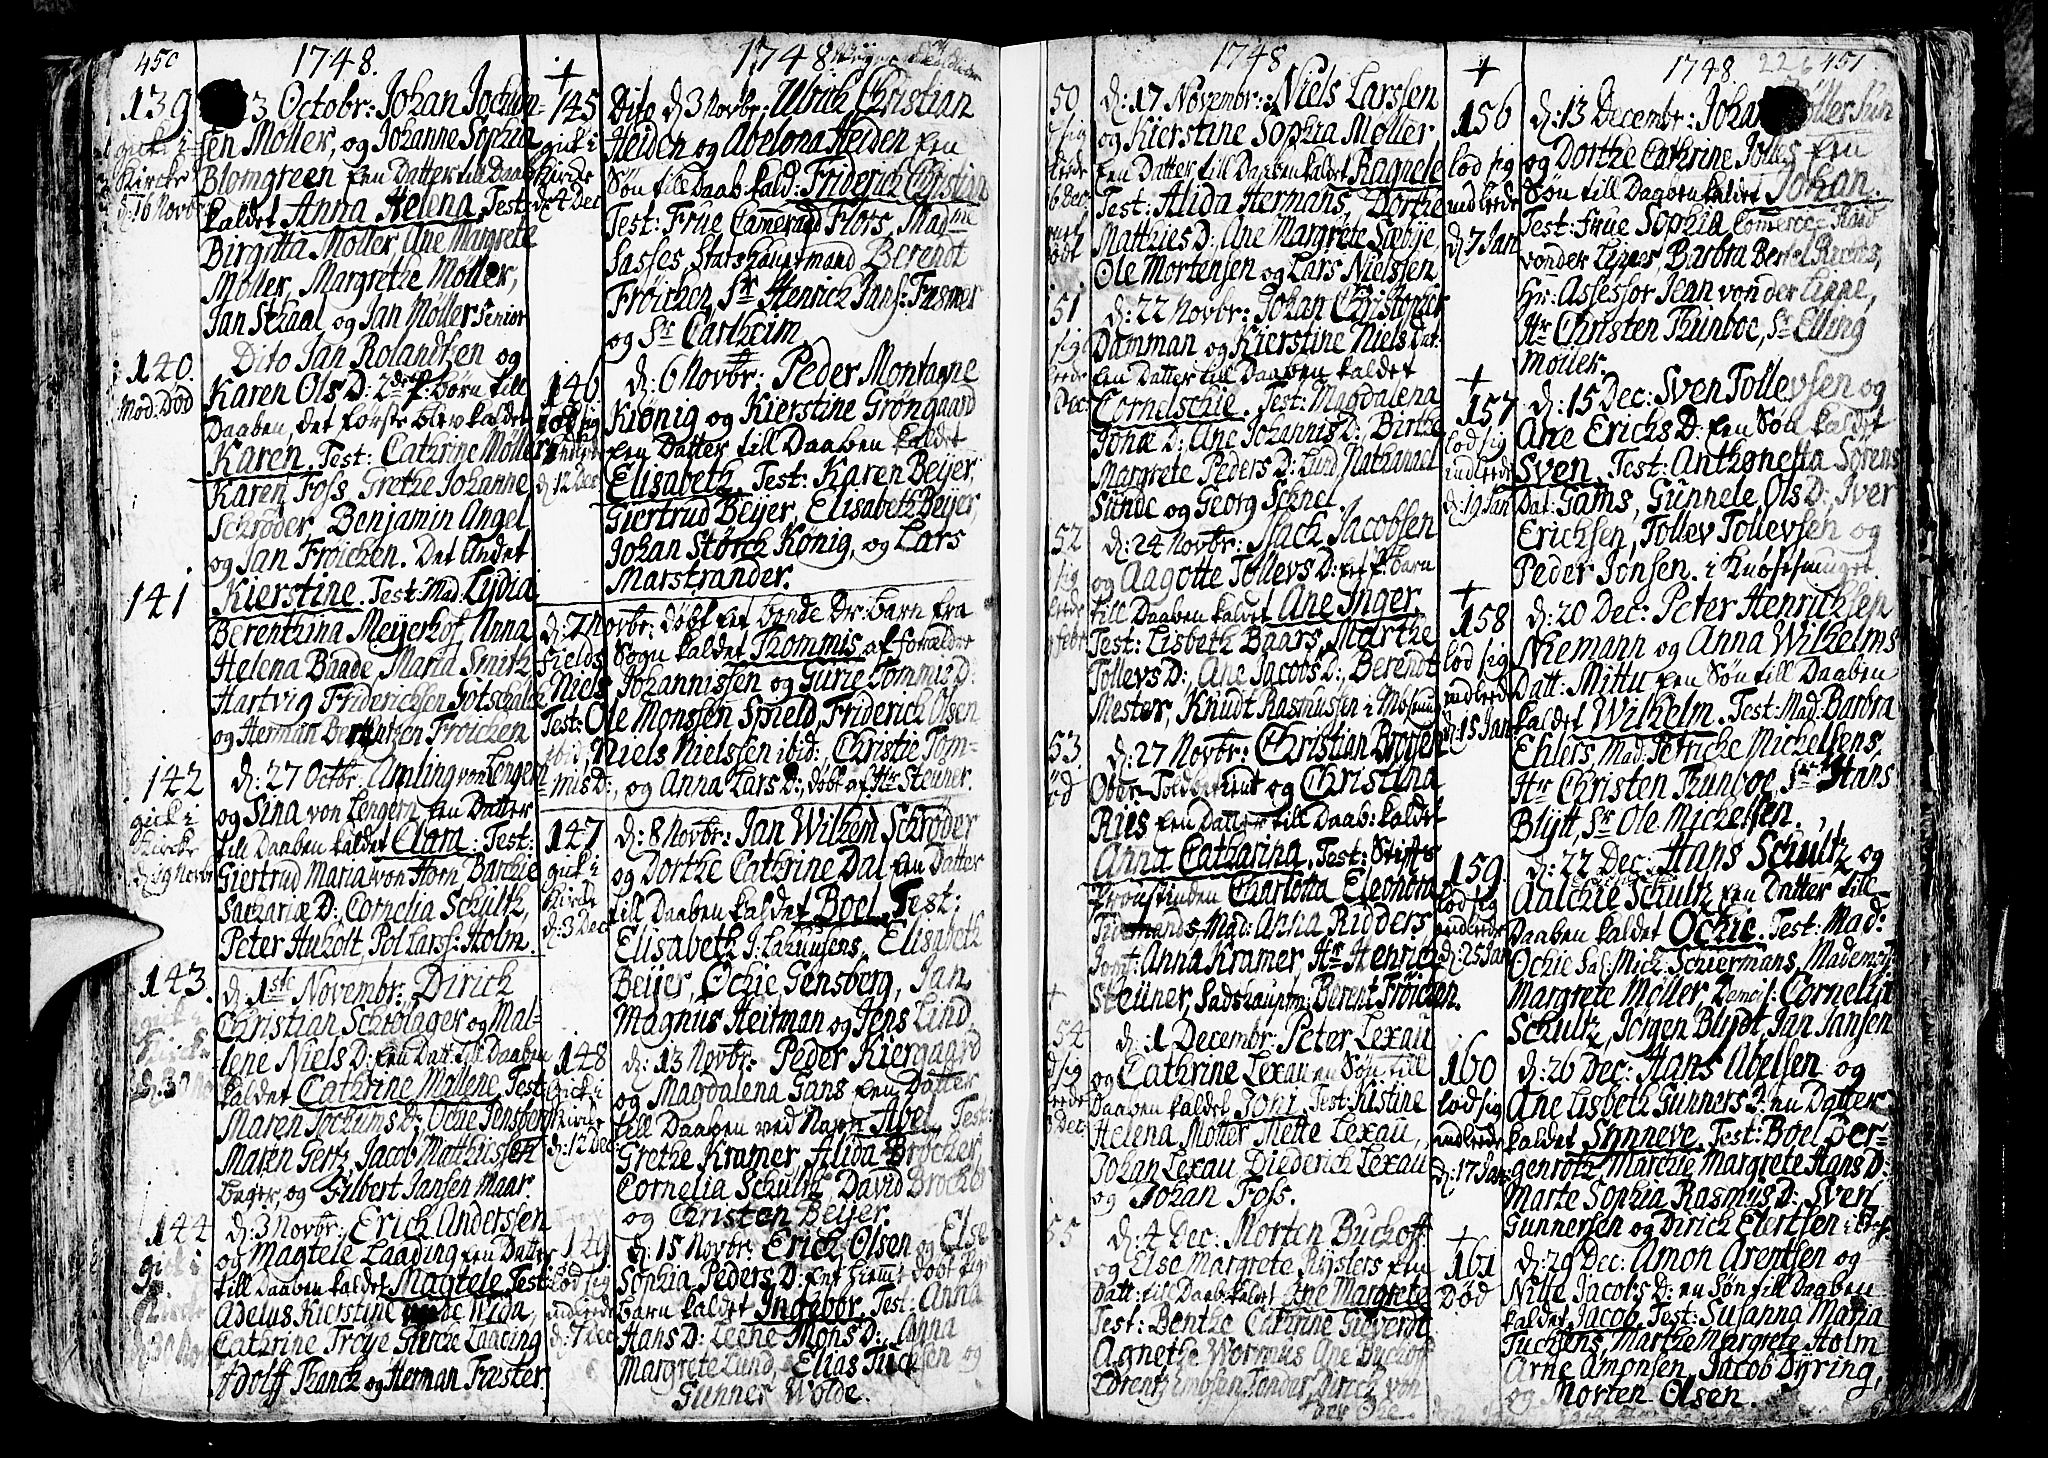 450
1748.
139
gick i
Kircke
d: 16 Novbr
23 Octobr: Johan Jochum-
sen Møller, og Johanne Sophia
Blomgreen een Datter till Daab
kaldet Anna Helena. Test:
Birgitta Møller, Ane Margrete
Møller, Margrethe Møller,
Jan Schaal og Jan Møller Senior
140.
Mod: Død
Dito Jan Rolandtsen og
Karen Ols D: 2de børn till
Daaben, det første blev kaldet
Karen. Test: Cathrine Møller
Karen Foss, Grethe Johanne
Schrøder, Benjamin Angel
og Jan Frøichen. Det Andet
141
Kierstine. Test: Mad: Lydia
Berenthina Meijerhof, Anna
Helena Baade, Maria Smith,
Hartvig Friderichsen Gotschalck
og Herman Berentzen Frøichen
142
gick i
Kircke
d: 19 Novbr
d: 27 Octbr: Amling von Lengern
og Sina von Lengern een Datter
till Daaben kaldet Clara. Test:
Giertrud Maria von Horn Barchie
Zachariæ D: Cornelia Schultz,
Peter Huholt, Pol Larss: Holm.
143.
gick i
Kircke
d: 30 Nov
d: 1ste Novembr: Dirich
Christian Schrolager og Mal-
lene Niels D: een Datt: till Daaben
kaldet Cathrine Mallene Test:
Maren Jochums D: Ochie Jensberg
Maren Gertz, Jacob Matthiesen
bager, og Gilbert Jansen Maar.
144
gick i
Kircke
d: 30 Nov
d: 3 Novbr: Erich Andersen
og Magtele Laading een Datter
till Daaben kaldet Magtele. Test:
Adelus Kierstine von de Wida,
Cathrine Trøye Gertze Laading
Adolff Franck og Herman Friester.
1748
+
145
gick i
Kircke
d: 4 Dec
Dito d: 3 Novbr: Ulrich Christian
Heiden og Abelona Heiden een
Søn till Daab: kald: Friderich Christian
Test: Frue Cameraad Flors, Madme
Sasses, Stats hauptmand Berendt
Frøichen, Sr Henrich Jans: Fasmer
og Sr Carlheim
146
lod sig
indlede
d: 12 Dec
d: 6 Novbr: Peder Montagne
Kiønig og Kierstine Grøngaard
een Datter till Daaben kaldet
Elisabeth. Test: Karen Beijer,
Giertrud Beijer, Elisabeth Beijer,
Johan Størch Kønig, og Lars
Marstrander.
d: 7 Novbr: døbt eet bonde Dr: barn fra
Fields Sogn kaldet Thommis af forældre
Niels Johannissen og Gurie Tommis D:
Test: Ole Monssen Smeld, Friderich Olsen
ibid, Niels Nielssen ibid: Christie Tom-
mis D:, og Anna Lars D:, døbt af Hr Steuner.
147
gick i
Kircke
d: 3 Dec
d: 8 Novbr: Jan Wilhem Schrøder
og Dorthe Cathrine Dal een Datter
till Daaben kaldet Boel. Test:
Elisabeth J: Laurensens, Elisabeth
Beijer, Ochie Gensberg, Jan
Magnus Heitman og Jens Lind.
148
Gick i
Kircke
d: 12 Dec
d: 13 Novbr: Peder Kiergaard
og Magdalena Gans een Datter
till Daaben ved Navn Abel. Test:
Grethe Kramer, Alida Brøcker
Cornelia Schultz, David Brøcker
og Christen Beijer.
149
lod sig
indlede
d: 7 Dec
d: 15 Novbr: Erich Olsen og Else
Sophia Peders D: eet hiemme døbt pige
barn kaldet Ingebor. Test: Anna
Hans D: Leene Mons D:, Anna
Margrete Lund, Elias Tuchsen og
Gunner Wolde.
1748
50
d: 17 Novembr: Niels Larssen
og Kierstine Sophia Møller
een Datter till Daaben kaldet Ragnele
Test: Alida Hermans, Dorthe
Matthies D:, Ane Margrete Sæbye,
Ole Mortensen og Lars Nielssen
151
d: 22 Novbr: Johan Christopher
Damman og Kierstine Niels Dat:
een Datter till Daaben kaldet
Cornelschie. Test: Magdalena
Jonæ D: Ane Johannis D:, Birthe
Margrete Peders D: Lund, Nathanael
Sunde og Georg Schnel.
52
d: 24 Novbr: Jlach Jacobsen
og Aagotte Tollevs D: eet barn
till Daaben kaldet Ane Inger
Test: Lisbeth Baars, Marthe
Tollevs D:, Ane Jacobs D:, Berendt
Mester, Knudt Rasmussen i
53.
d: 27 Novbr: Christian Brorsen
Ober-Toldbetient og Christina
Ries een Datter till Daab: kaldet
Anna Catharina. Test: Stiffts
Proustinden Charlotta Eleonora
Tidemands, Mad: Anna Ridders
Jomf: Anna Kramer, Hr Henrich
Steuner, Stadshauptm: Berent Frøichen.
54
d: 1 Decembr: Peter Lexau
og Cathrine Lexau en Søn till
Daaben kaldet Joni. Test: Kistine
Helena Møller, Mette Lexau,
Johan Lexau, Diederich Lexau
og Johan Foss.
55
d: 4 Dec: Morten Buchoff
og Else Margrete Rijsters een
Datt: till Daab: kaldet Ane Margrete
Test: Benthe Cathrine Gieverdt
Agnethe Wormus, Ane Buchoff
Lorentz Jander, Dirich von
der Ohe.
1748.
226
451
+
156
lod sig
indlede
d: 7 Jan
d: 13 Decembr: Johan Møller Jun
og Dorthe Cathrine Jolles een
Søn till Daaben kaldet Johan.
Test: Frue Sophia Commerce-Raad
vonder Lippes, Barbra Bertel
Hr: Assessor Jean vonder Lippe,
Hr Christen Thunboe, Sr Elling
Møller.
+
157
lod sig
indlede
d: 19 Jan
d: 15 Dec: Sven Tollevsen og
Ane Erichs D: een Søn kaldet
Sven. Test: Anthonetta Sørens
Dat: Gams, Gunnele Ols D:, Iver
Erichsen, Tollev Tollevsen og
Peder Jonsen. i Knøsesmuget.
+
158
lod sig
indlede
d: 15 Jan
d: 20 Dec: Peter Henrichsen
Niemann og Anna Wilhelms
Datt: Mittu een Søn till Daaben
kaldet Wilhelm. Test: Mad: Barbra
Ehlers, Mad: Petriche Michelsens,
Hr Christen Thunboe, Sr Hans
Blijtt, Sr Ole Michelsen.
159
lod sig
indlede
d: 25 Jan
d: 22 Dec: Hans Schultz og
Aalchie Schultz een Datter till
Daaben kaldet Ochie. Test: Mad:
Ochie Sal: Mich: Schiermans, Mademois:
Margrete Møller, Demois: Cornelia
Schultz, Jørgen Blijdt, Jan Jansen
160
lod sig
indlede
d: 17 Jan
d: 26 Dec: Hans Abelsen og
Ane Lisbeth Gunners D: en Datter
kaldet Synneve. Test: Boel Ber-
genroth, Marchie Margrete Hans D:
Marte Sophia Rasmus D:, Sverf
Gunnersen og Dirich Elertsen i
+
161
Død
d: 29 Dec: Amon Arentsen og
Nille Jacobs D: en Søn till Daaben
kaldet Jacob. Test: Susanna Maria
Tuchsens, Marthe Margrete Holm
Arne Amonsen, Jacob Dyring,
og Morten Olsen.